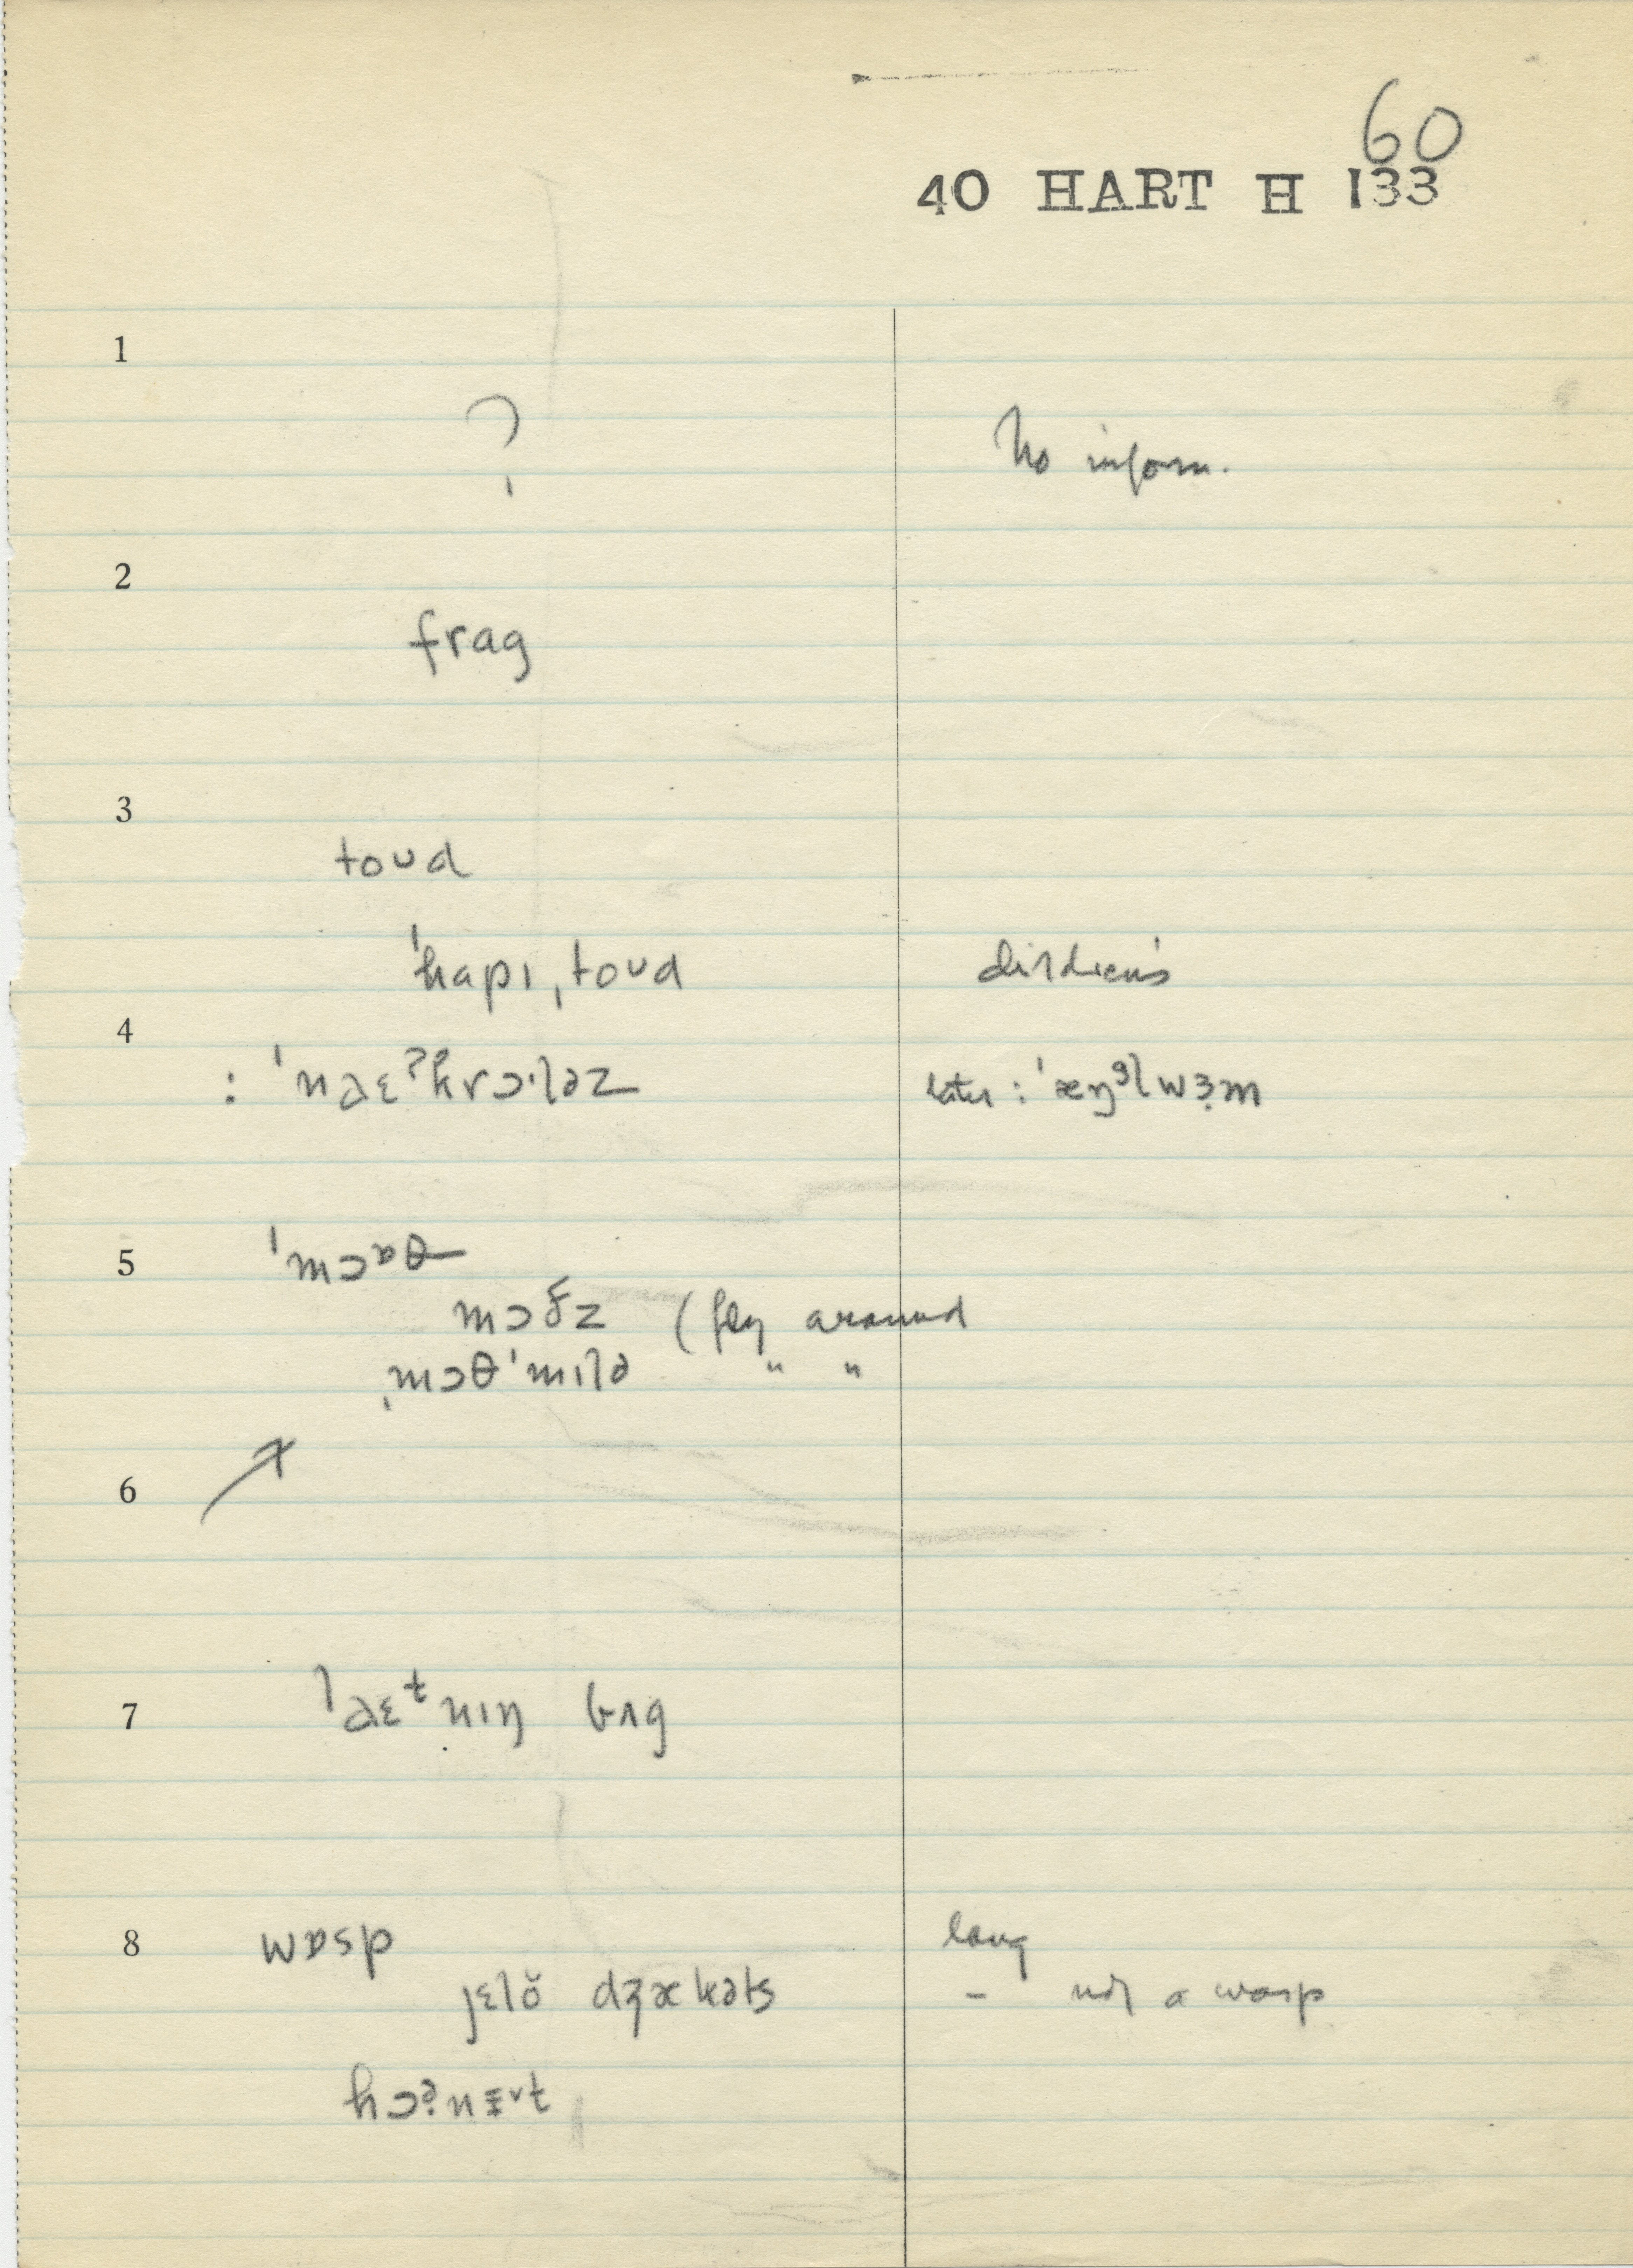 60
40 HART H 133
1
? No inform.
2
frag
3
toʊd
ˈhapɪˌtoʊd
4
: ˈnaɛˀk̬rɔˑləz later : ˈæŋᵍl wɜ̣m
5
ˈmɔɒθ
mɔðz (fly around
ˌmɔθˈmɪlə " "
6
7
ˈlaɛᵗnɪŋ bʌg
8
wɒsp long
jɛlŏ dʒækəts – not a wasp